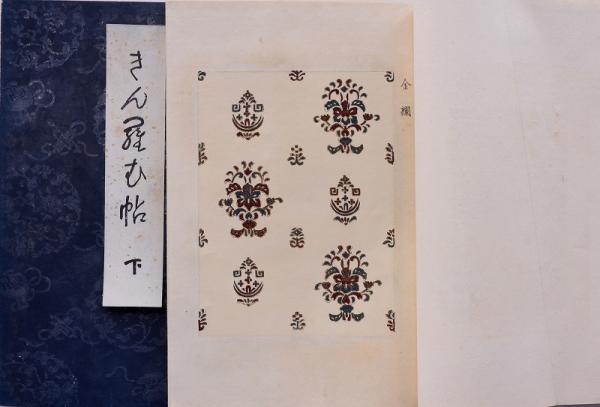 きん羅む帖 下
金襴